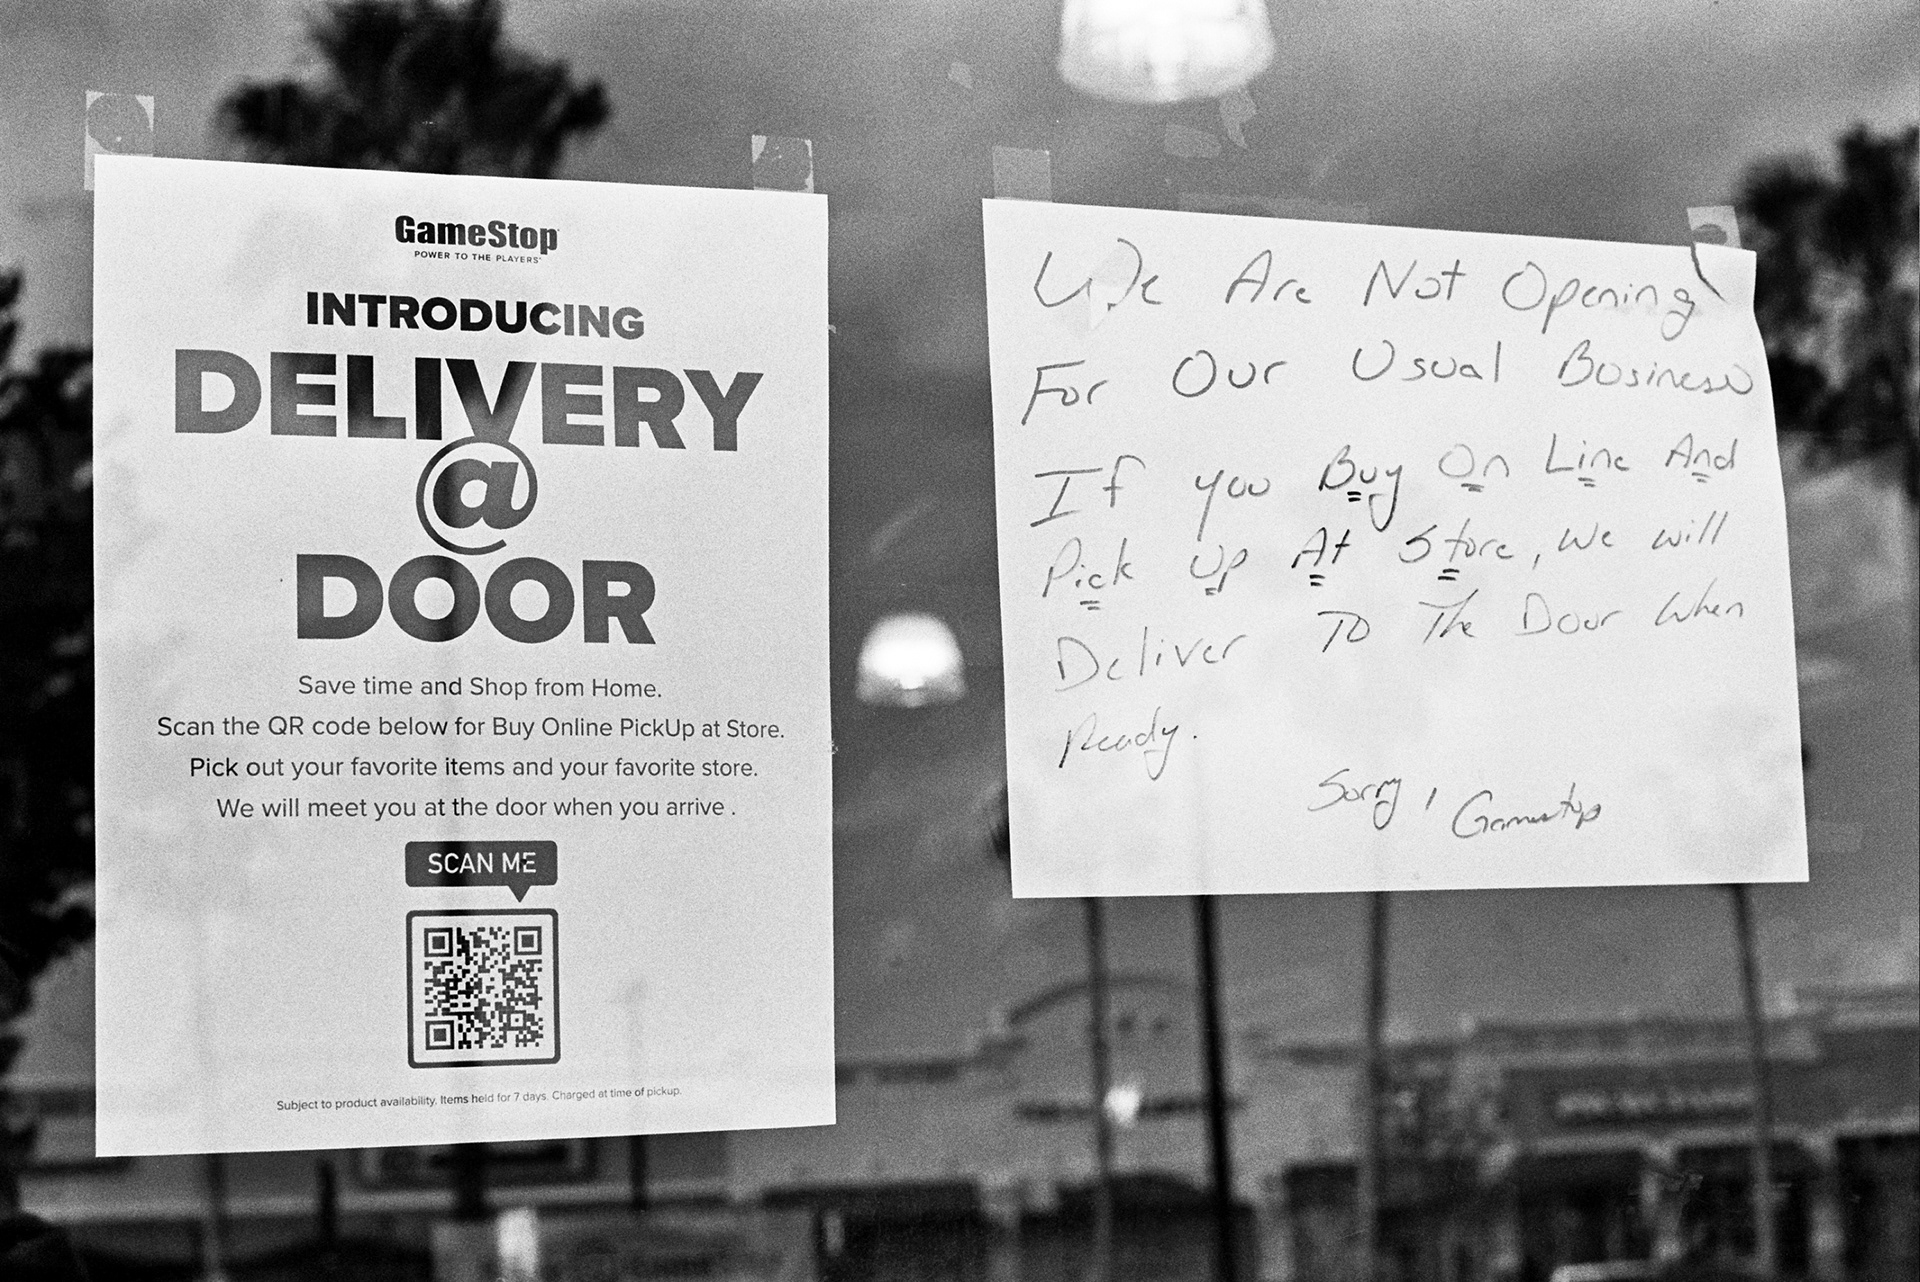 GameStop
POWER TO THE PLAYERS
INTRODUCING
DELIVERY
@
DOOR
Save time and Shop from Home.
Scan the QR code below for Buy Online PickUp at Store.
Pick out your favorite items and your favorite store.
We will meet you at the door when you arrive .
SCAN ME
Subject to product availability. Items held for 7 days. Charged at time of pickup.
We Are Not Opening
For Our Usual Business
If you Buy On Line And
Pick Up At Store, We will
Deliver To The Door When
Ready.
Sorry, Gamestop